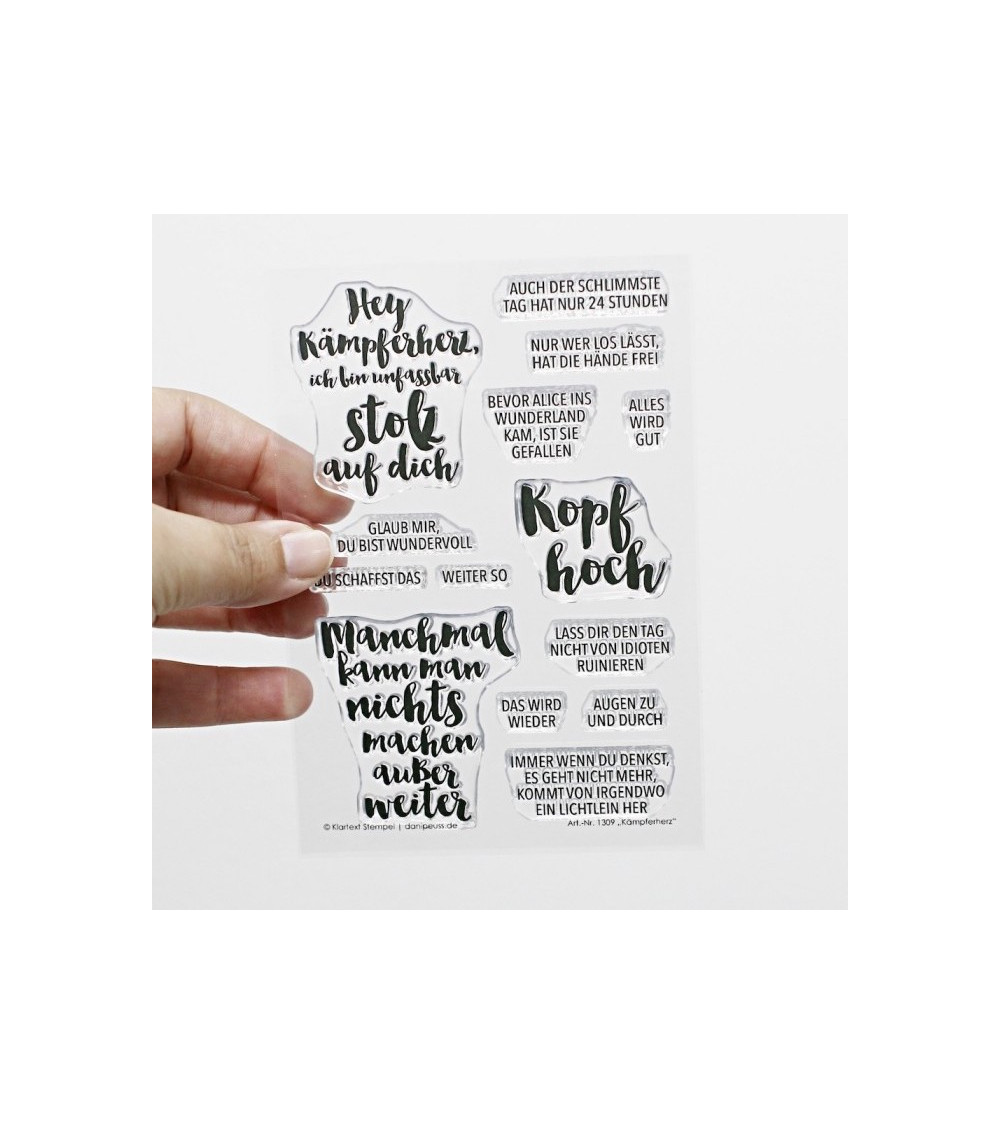 Hey
Kämpferherz,
ich bin unfassbar
stolz
auf dich
AUCH DER SCHLIMMSTE
TAG HAT NUR 24 STUNDEN
NUR WER LOS LÄSST,
HAT DIE HÄNDE FREI
BEVOR ALICE INS
WUNDERLAND
KAM, IST SIE
GEFALLEN
ALLES
WIRD
GUT
GLAUB MIR,
DU BIST WUNDERVOLL
DU SCHAFFST DAS
WEITER SO
Kopf
hoch
Manchmal
kann man
nichts
machen
außer
weiter
LASS DIR DEN TAG
NICHT VON IDIOTEN
RUINIEREN
DAS WIRD
WIEDER
AUGEN ZU
UND DURCH
IMMER WENN DU DENKST,
ES GEHT NICHT MEHR,
KOMMT VON IRGENDWO
EIN LICHTLEIN HER
© Klartext Stempel | danipeuss.de
Art.-Nr. 1309 „Kämpferherz"